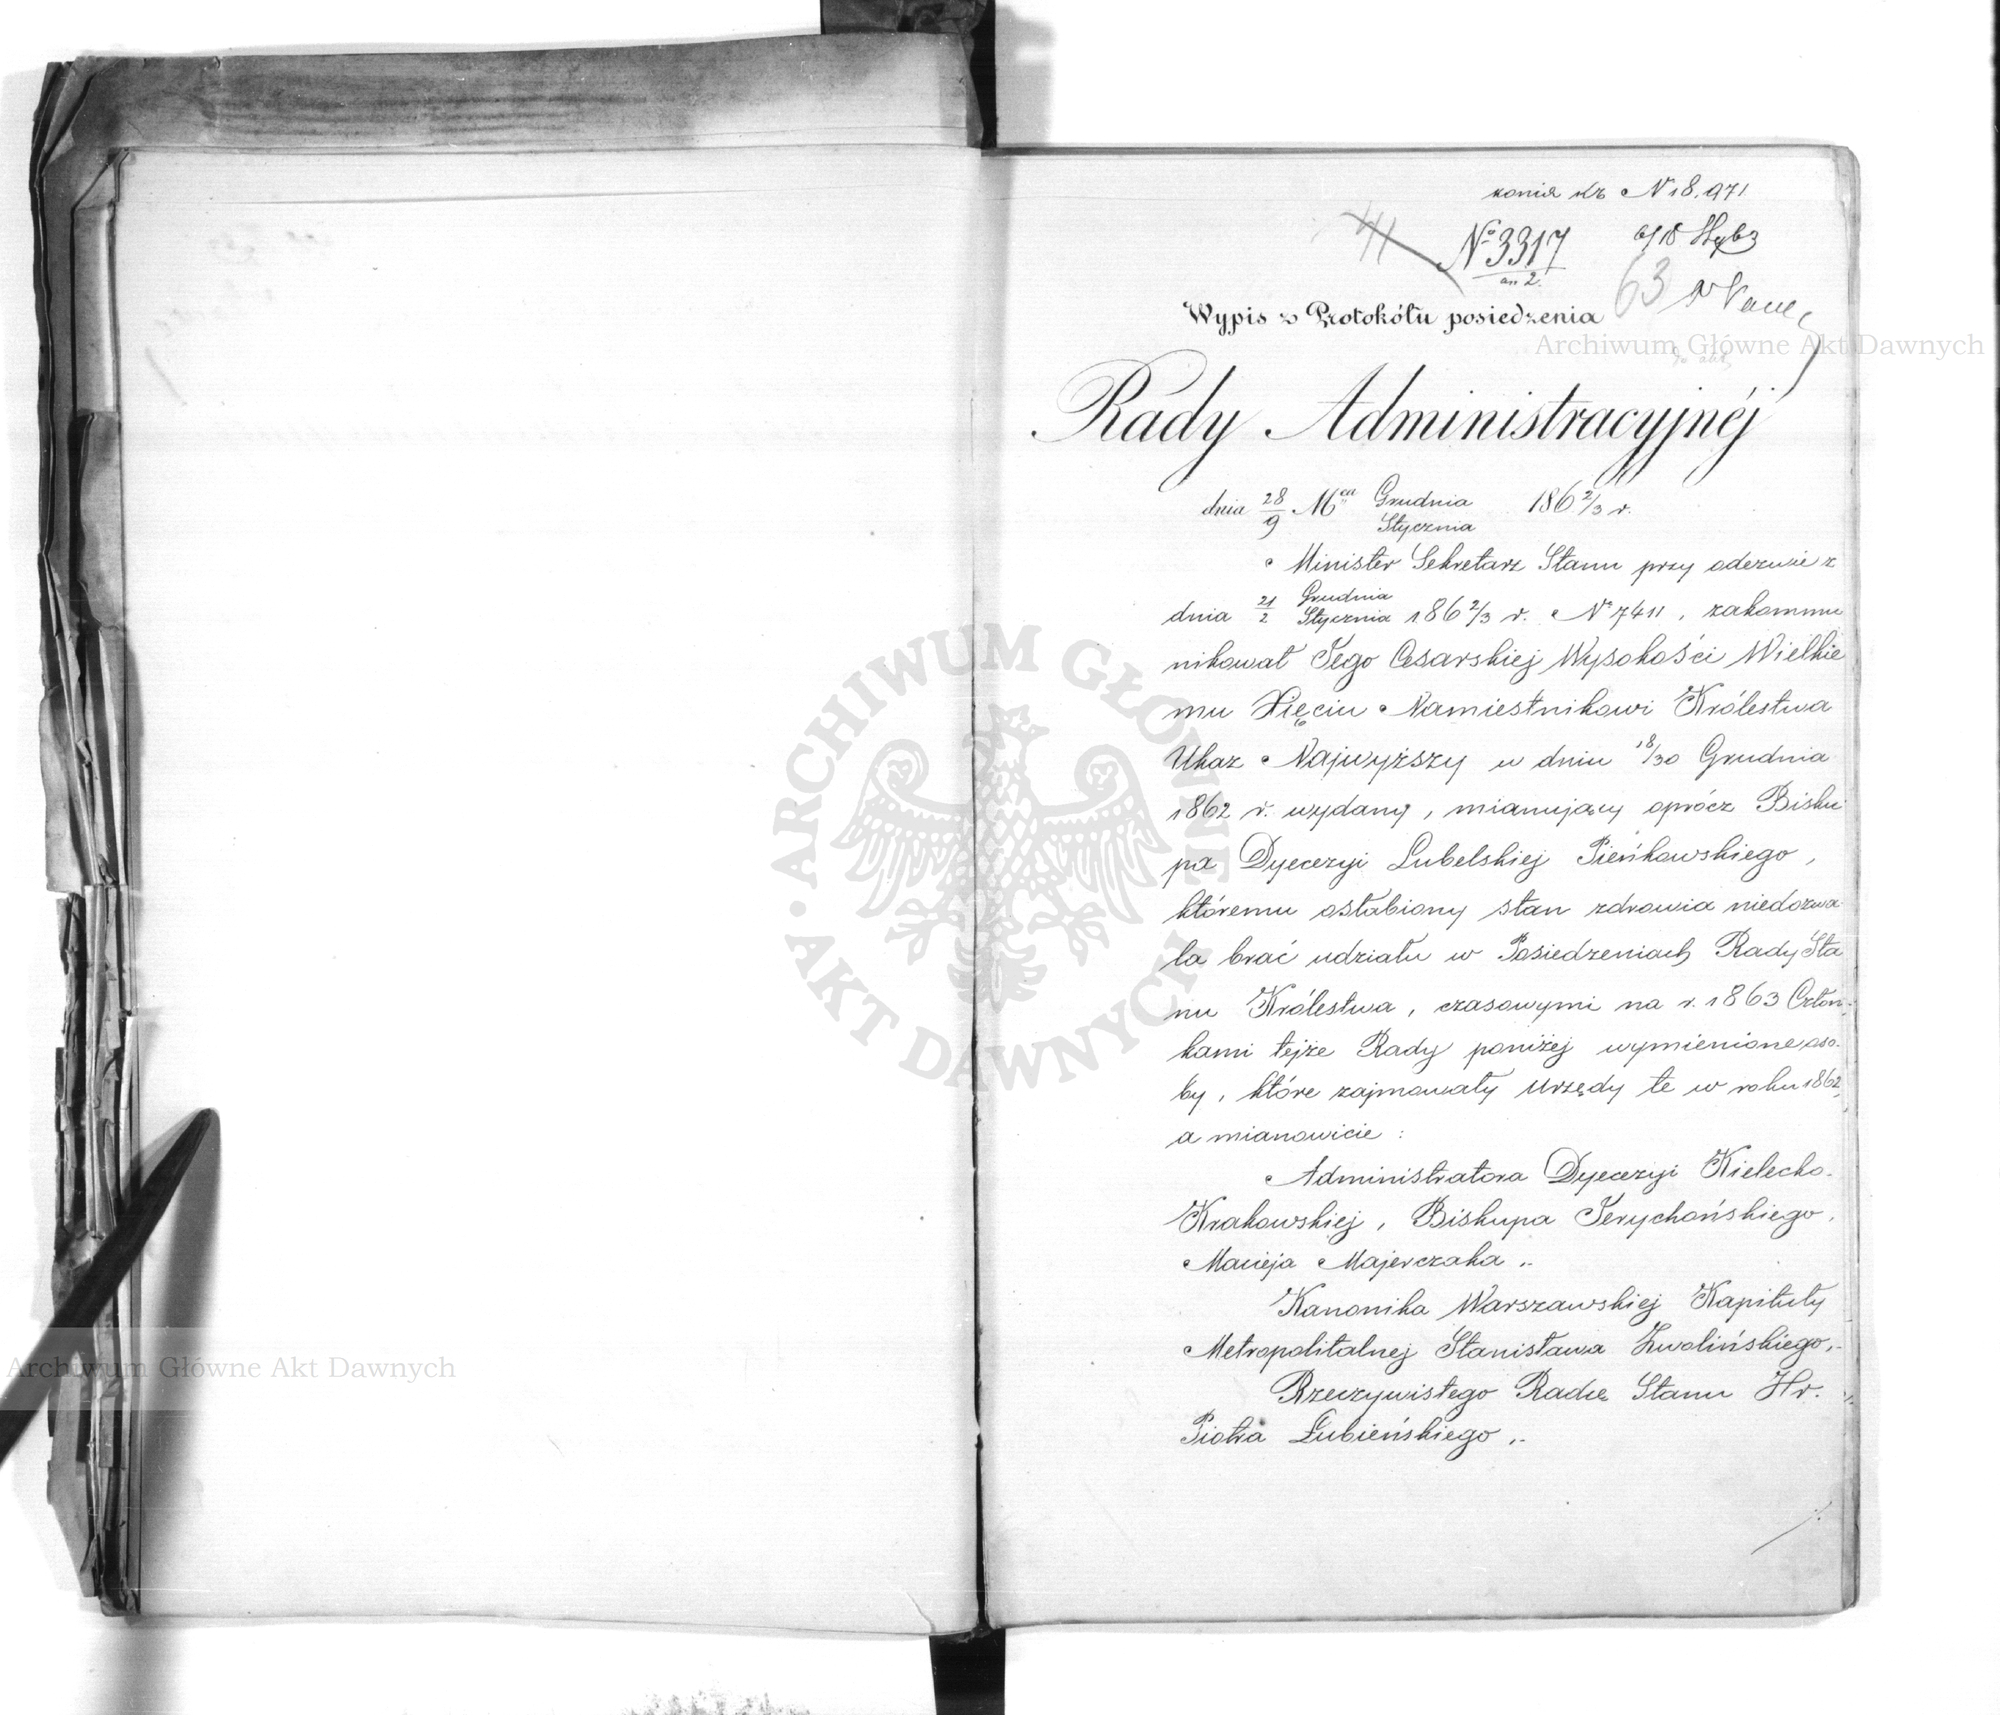 N 18.971
41
№ 3317
6/18
63
Wypis z Protokółu posiedzenia
Rady Administracyjnéj
dnia 28/9 Mca Grudnia/Stycznia 1862/3 r.
Minister Sekretarz Stanu przy odezwie z
dnia 21/2 Grudnia/Stycznia 1862/3 r. № 7411, zakommu
nikował Jego Cesarskiej Wysokości Wielkie
mu Xięciu Namiestnikowi Królestwa
Ukaz Najwyższy w dniu 18/30 Grudnia
1862 r. wydany, mianujący oprócz Bisku
pa Dyecezyi Lubelskiej Pieńkowskiego,
któremu osłabiony stan zdrowia niedozwa
la brać udziału w Posiedzeniach Rady Sta
nu Królestwa, czasowymi na r. 1863 Człon-
kami tejże Rady poniżej wymienione oso-
by, które zajmowały urzędy te w roku 1862,
a mianowicie:
Administratora Dyecezyi Kielecko-
Krakowskiej, Biskupa Jerychońskiego,
Macieja Majerczaka,.
Kanonika Warszawskiej Kapituły
Metropolitalnej Stanisława Zwolińskiego,.
Rzeczywistego Radcę Stanu Hr.
Piotra Łubieńskiego,.
./.
Archiwum Główne Akt Dawnych
ARCHIWUM GŁÓWNE • AKT DAWNYCH •
Archiwum Główne Akt Dawnych